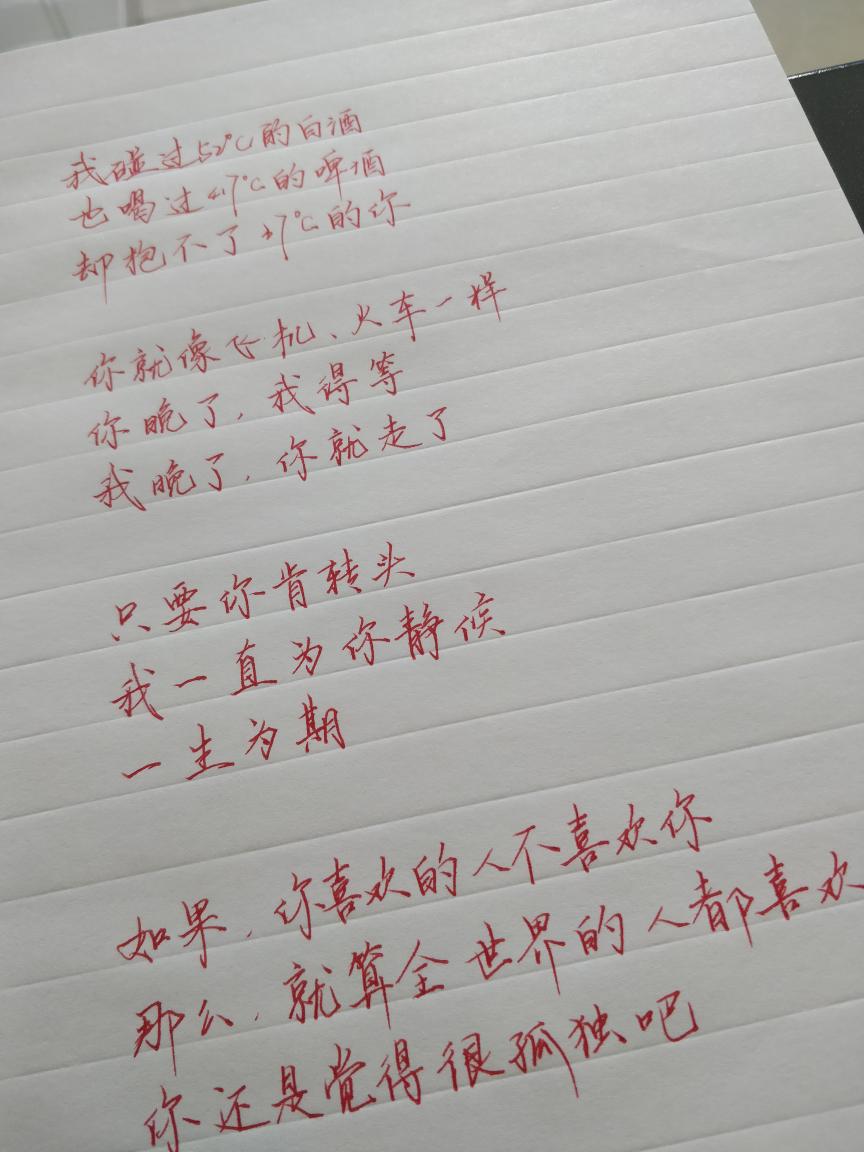 我碰过52°C的白酒
也喝过-17°C的啤酒
却抱不了37°C的你
你就像飞机、火车一样
你晚了,我得等
我晚了,你就走了
只要你肯转头
我一直为你静候
一生为期
如果,你喜欢的人不喜欢你
那么,就算全世界的人都喜欢
你还是觉得很孤独吧